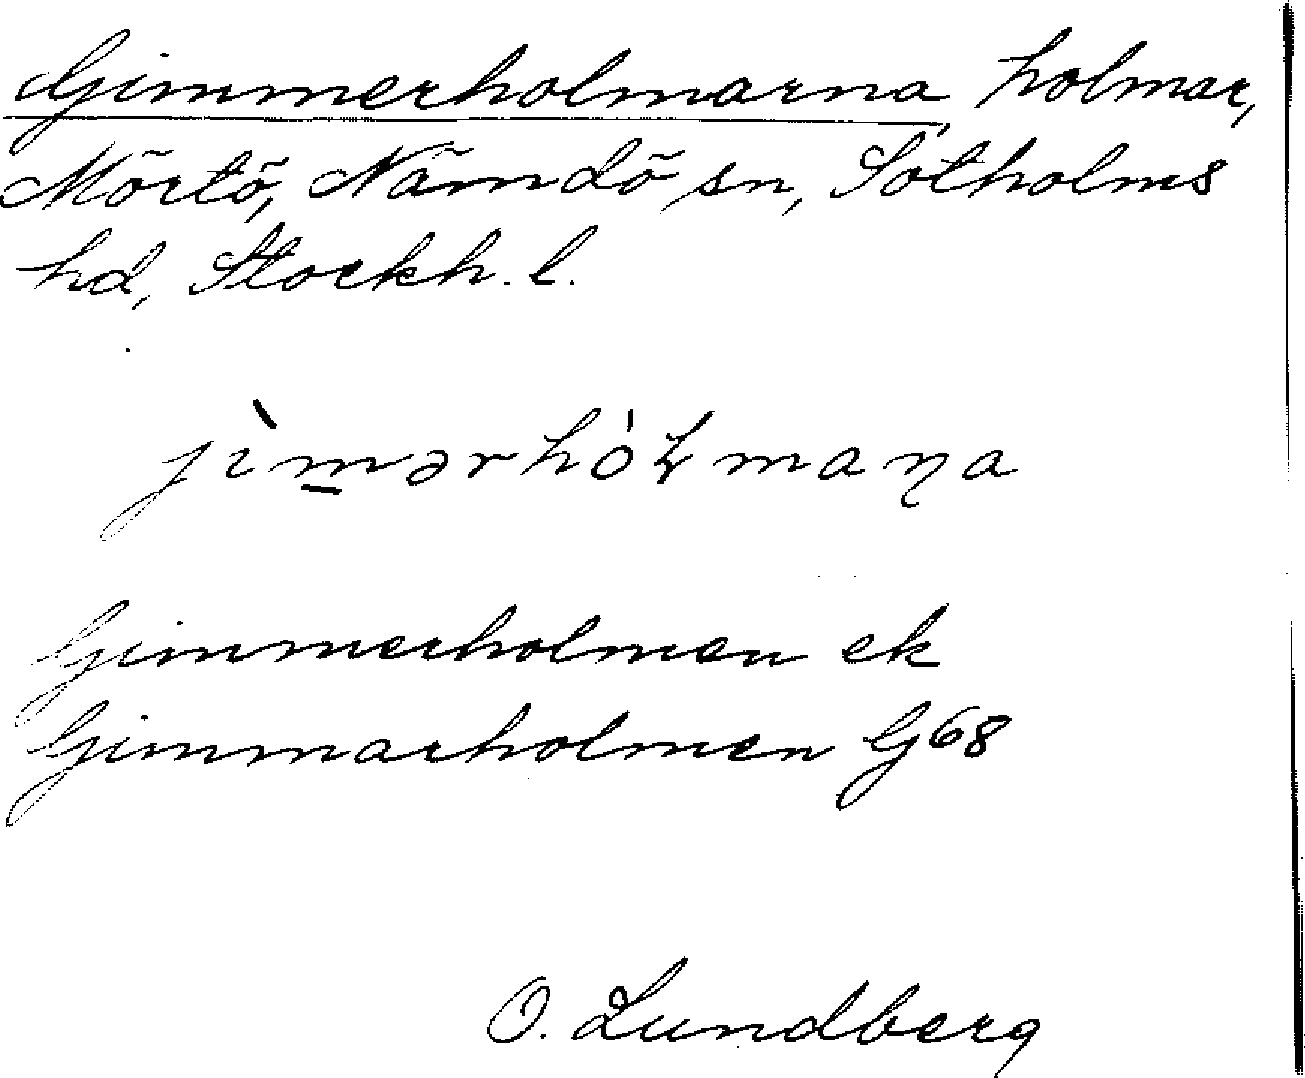 Gimmerholmarna, holmar,
Mörtö, Nämdö sn, Sotholms
hd, Stockh. l.
jìm̲ərhóɫmaɳa
Gimmerholmen ek
Gimmarholmen G68
O. Lundberg